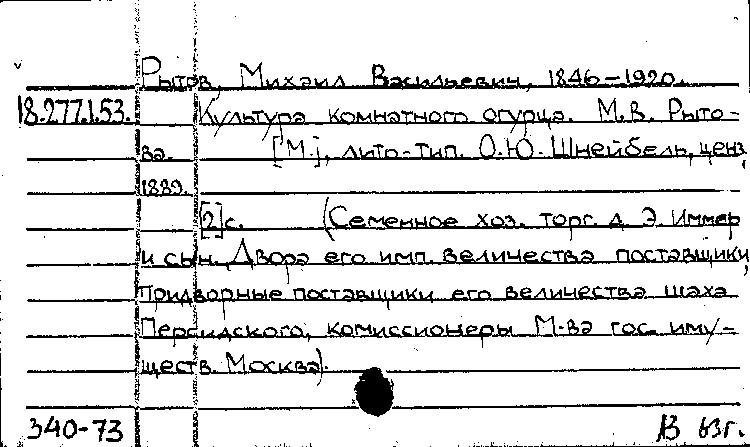 Рытов, Михаил Васильевич, 1846-1920.
18.277.1.53. Культура комнатного огурца. М.В. Рыто-
ва. [М.], лито-тип. О.Ю. Шнейбель, ценз.
1889.
[2]с. (Семенное хоз. торг. д. Э. Иммер
и сын. Двора его имп. величества поставщики,
Придворные поставщики его величества шаха
Персидского, комиссионеры М-ва гос. иму-
ществ. Москва).
340-73 В 63г.